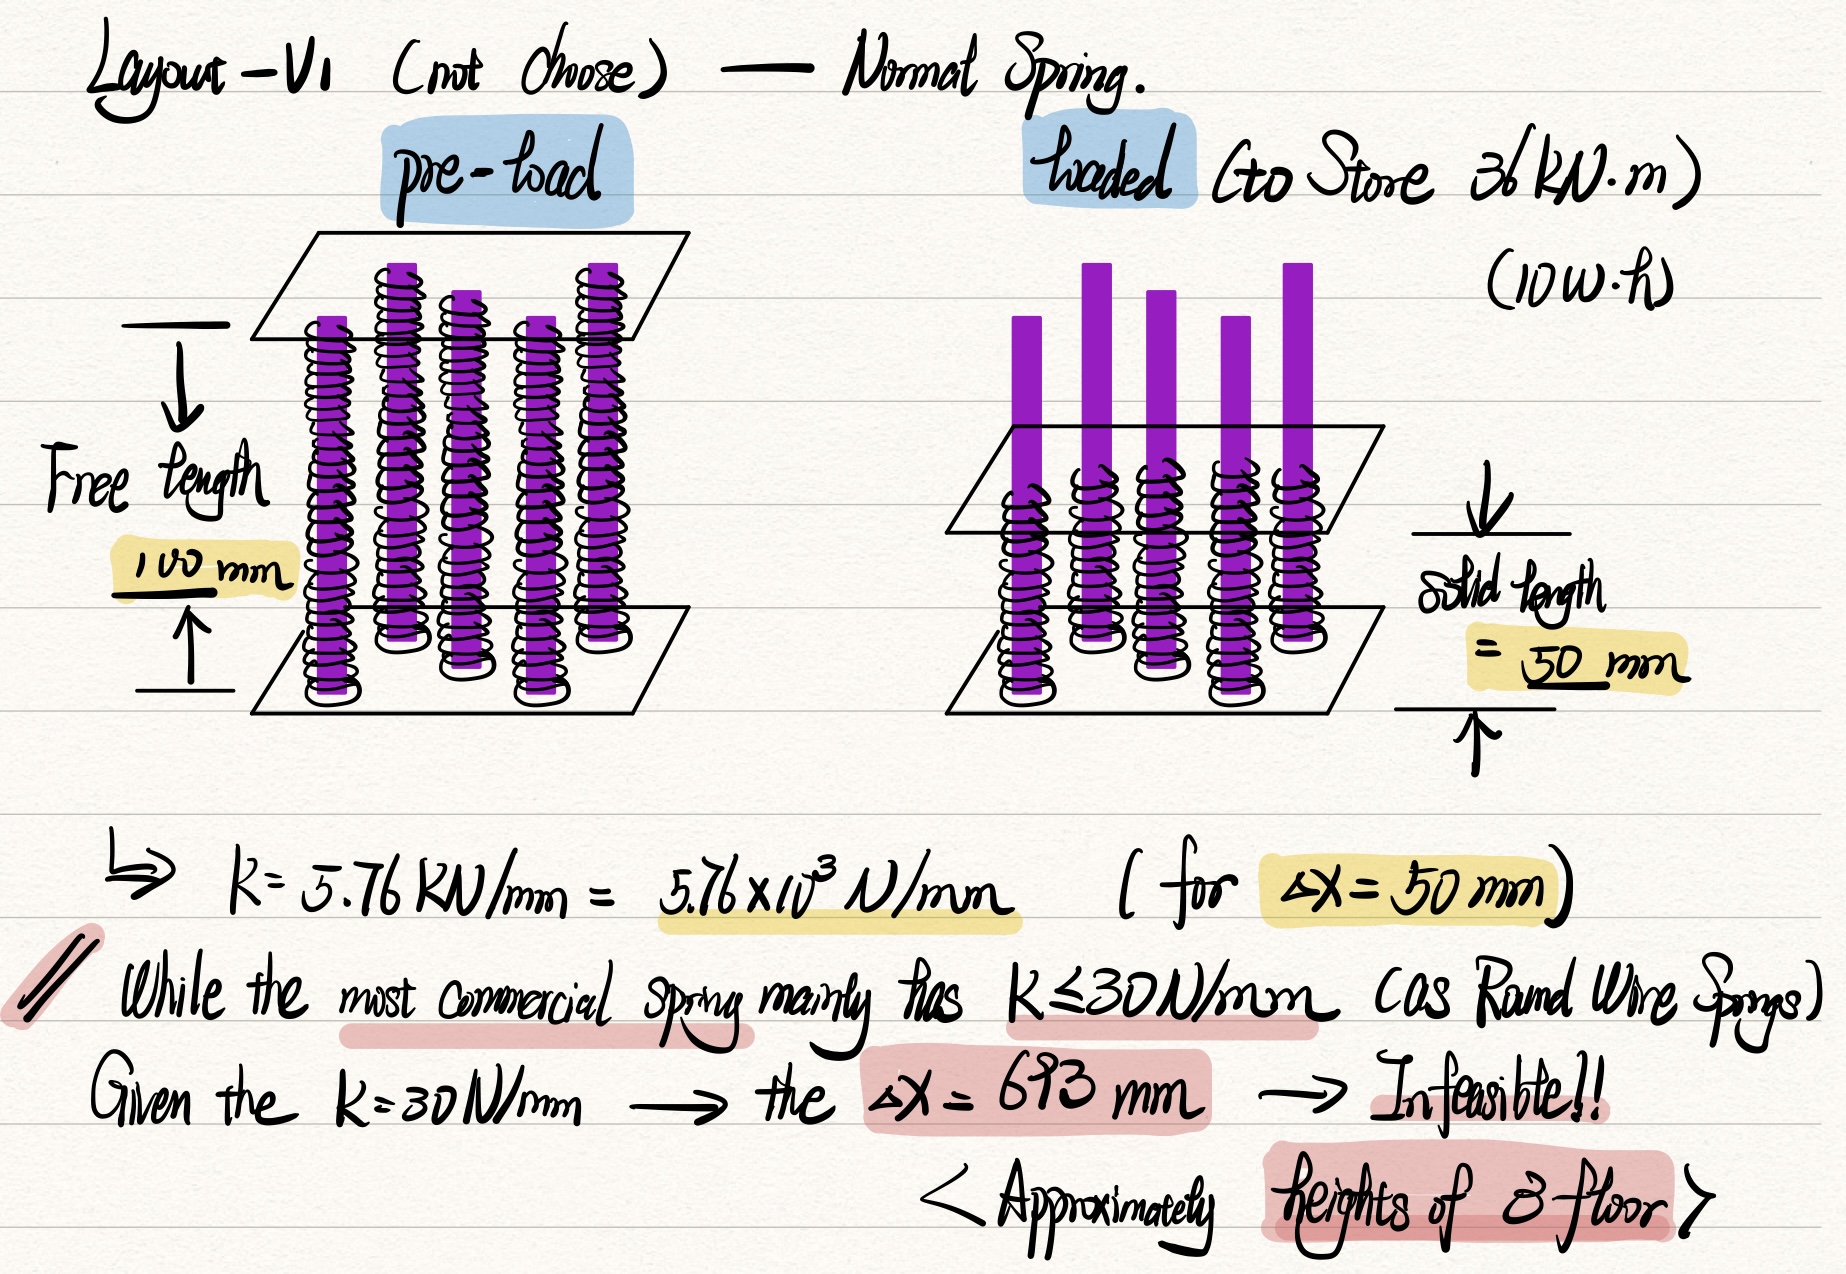 Layout-V1 (not choose) — Normal Spring.
pre-load
loaded (to Store 36 kN·m)
(10W·h)
Free length
100 mm
Solid length
= 50 mm
↳ k= 5.76 KN/mm = 5.76×10³ N/mm (for ΔX= 50 mm)
While the most commercial spring mainly has K≤30N/mm (as Round Wire Springs)
Given the K=30N/mm → the ΔX= 693 mm → Infeasible!!
< Approximately heights of 3 floor >